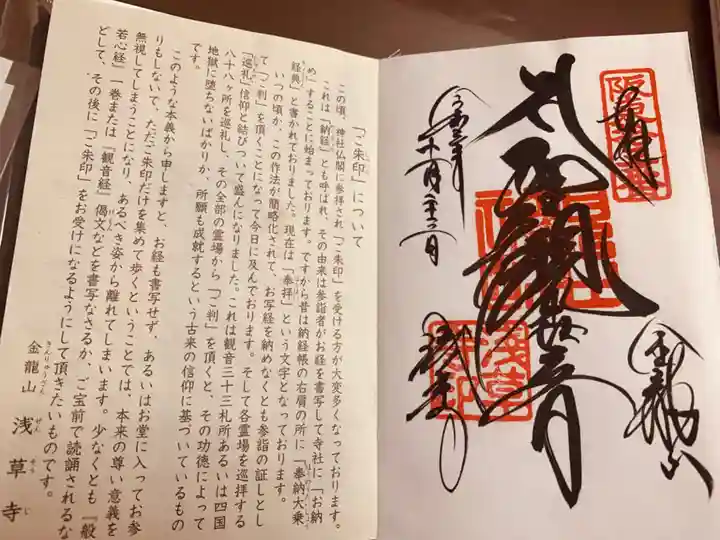 「ご朱印」について
この頃、神社仏閣に参拝され「ご朱印」を受ける方が大変多くなっております。
これは「納経」とも呼ばれ、その由来は参詣者がお経を書写して寺社に「お納
め」することに始まっております。ですから昔は納経帳の右肩の所に「奉納大乗
経典」と書かれておりました。現在は「奉拝」という文字となっております。
いつの頃か、この作法が簡略化されて、お写経を納めなくとも参詣の証しとし
て「ご判」を頂くことになって今日に及んでおります。そして各霊場を巡拝する
「巡礼」信仰と結びついて盛んになりました。これは観音三十三札所あるいは四国
八十八ヶ所を巡礼し、その全部の霊場から「ご判」を頂くと、その功徳によって
地獄に堕ちないばかりか、所願も成就するという古来の信仰に基づいているもの
です。
このような本義から申しますと、お経も書写せず、あるいはお堂に入ってお参
りもしないで、ただご朱印だけを集めて歩くということでは、本来の尊い意義を
無視してしまうことになり、あるべき姿から離れてしまいます。少なくとも『般
若心経』一巻または『観音経』偈文などを書写なさるか、ご宝前で読誦されるな
どして、その後に「ご朱印」をお受けになるようにして頂きたいものです。
金龍山 浅草寺
きんりゅうざん せんそうじ
奉拝
金龍山
浅草寺